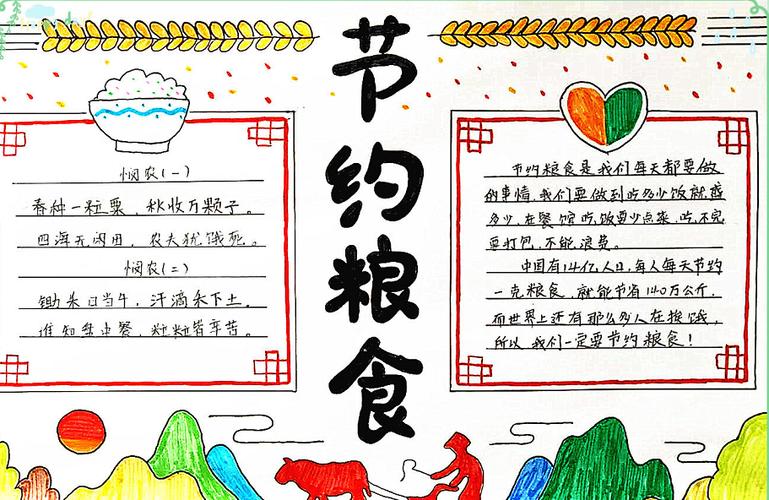 节约粮食
悯农(一)
春种一粒粟，秋收万颗子。
四海无闲田，农夫犹饿死。
悯农(二)
锄禾日当午，汗滴禾下土。
谁知盘中餐，粒粒皆辛苦。
节约粮食是我们每天都要做
的事情，我们要做到吃多少饭就盛
多少，在餐馆吃饭要少点菜，吃不完
要打包，不能浪费。
中国有14亿人口，每人每天节约
一克粮食，就能节省140万公斤，
而世界上还有那么多人在挨饿，
所以，我们一定要节约粮食！